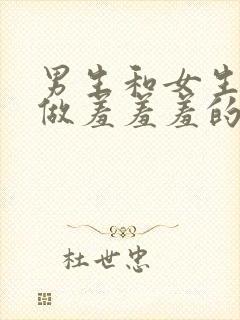 男生和女生
做羞羞羞的
杜世忠